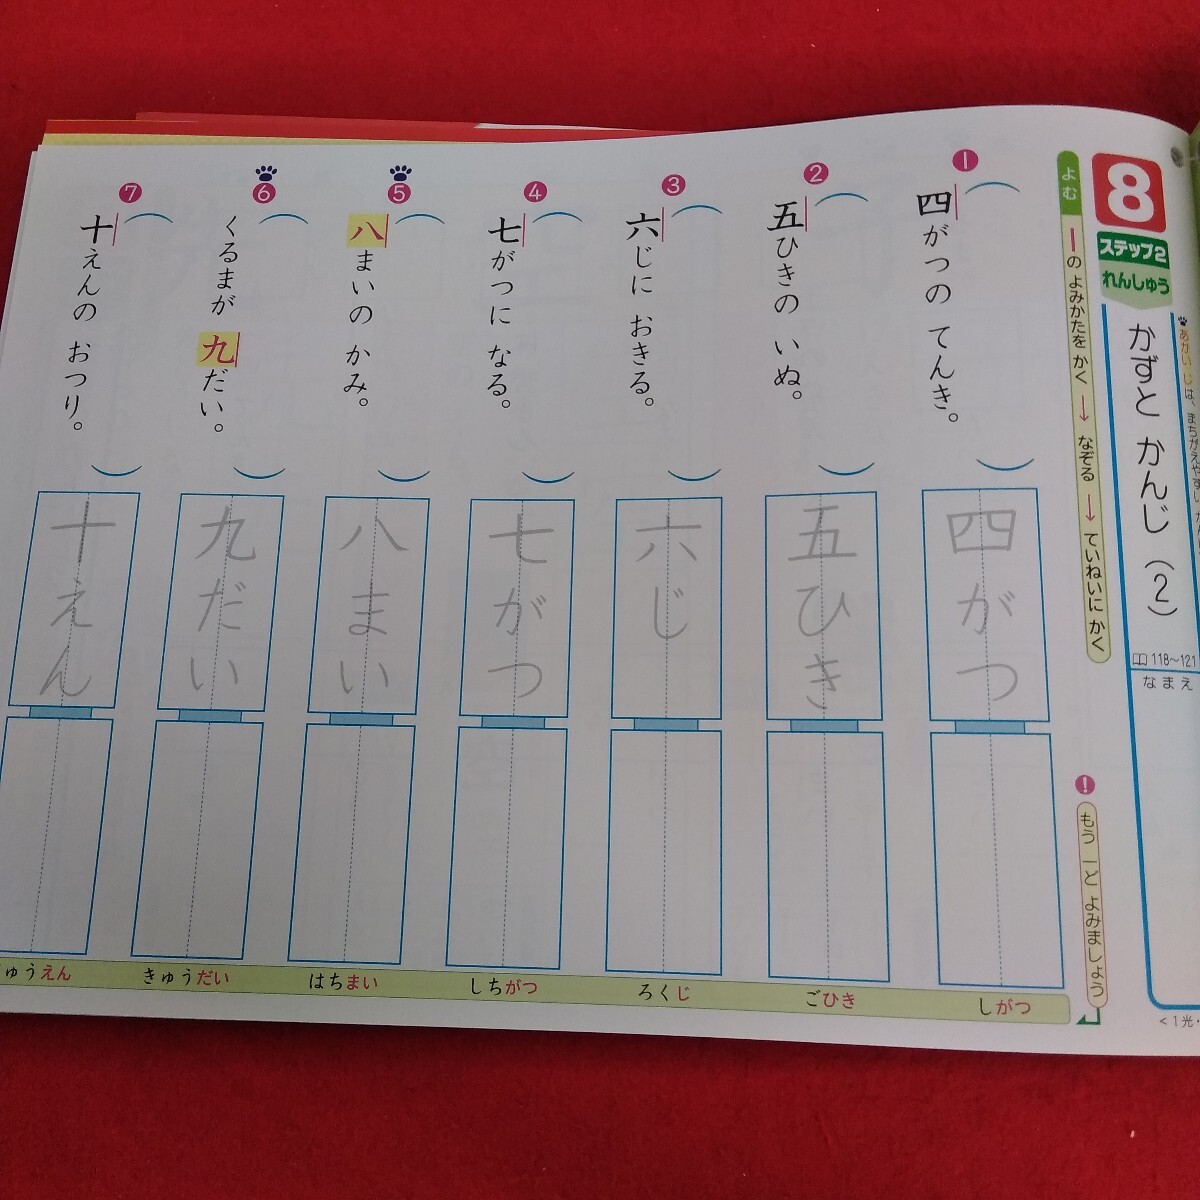 8
ステップ2
れんしゅう
かずと かんじ(2)
118〜121
なまえ
あかい じは、まちがえやすい
よむ
ーの よみかたを かく → なぞる → ていねいに かく
! もう 一ど よみましょう
1
四がつの てんき。
四がつ
しがつ
2
五ひきの いぬ。
五ひき
ごひき
3
六じに おきる。
六じ
ろくじ
4
七がつに なる。
七がつ
しちがつ
5
八まいの かみ。
八まい
はちまい
6
くるまが 九だい。
九だい
きゅうだい
7
十えんの おつり。
十えん
ゅうえん
<1光・